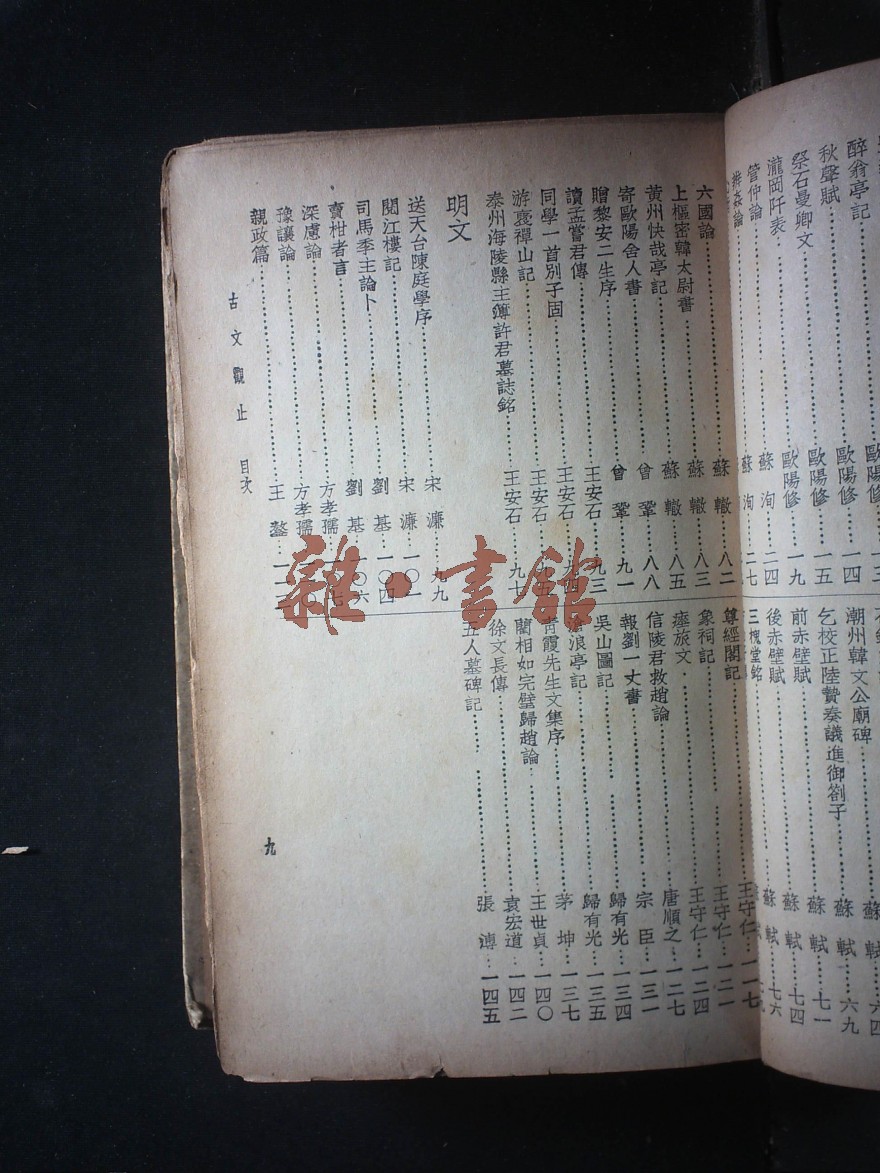 醉翁亭記 歐陽修 一三
秋聲賦 歐陽修 一四
祭石曼卿文 歐陽修 一五
瀧岡阡表 歐陽修 一九
管仲論 蘇洵 二四
辨姦論 蘇洵 二七
潮州韓文公廟碑 蘇軾 六四
乞校正陸贄奏議進御劄子 蘇軾 六九
前赤壁賦 蘇軾 七一
後赤壁賦 蘇軾 七四
三槐堂銘 蘇軾 七六
六國論 蘇轍 八二
上樞密韓太尉書 蘇轍 八三
黃州快哉亭記 蘇轍 八五
寄歐陽舍人書 曾鞏 八八
贈黎安二生序 曾鞏 九一
讀孟嘗君傳 王安石 九三
同學一首別子固 王安石 九四
游褒禪山記 王安石 九五
泰州海陵縣主簿許君墓誌銘 王安石 九七
明文
送天台陳庭學序 宋濂 九九
閱江樓記 宋濂 一〇一
司馬季主論卜 劉基 一〇四
賣柑者言 劉基 一〇六
深慮論 方孝孺
豫讓論 方孝孺
親政篇 王鏊
尊經閣記 王守仁 一一七
象祠記 王守仁 一二一
瘞旅文 王守仁 一二四
信陵君救趙論 唐順之 一二七
報劉一丈書 宗臣 一三一
吳山圖記 歸有光 一三四
滄浪亭記 歸有光 一三五
青霞先生文集序 茅坤 一三七
藺相如完璧歸趙論 王世貞 一四〇
徐文長傳 袁宏道 一四二
五人墓碑記 張溥 一四五
古文觀止 目次
九
雜·書館